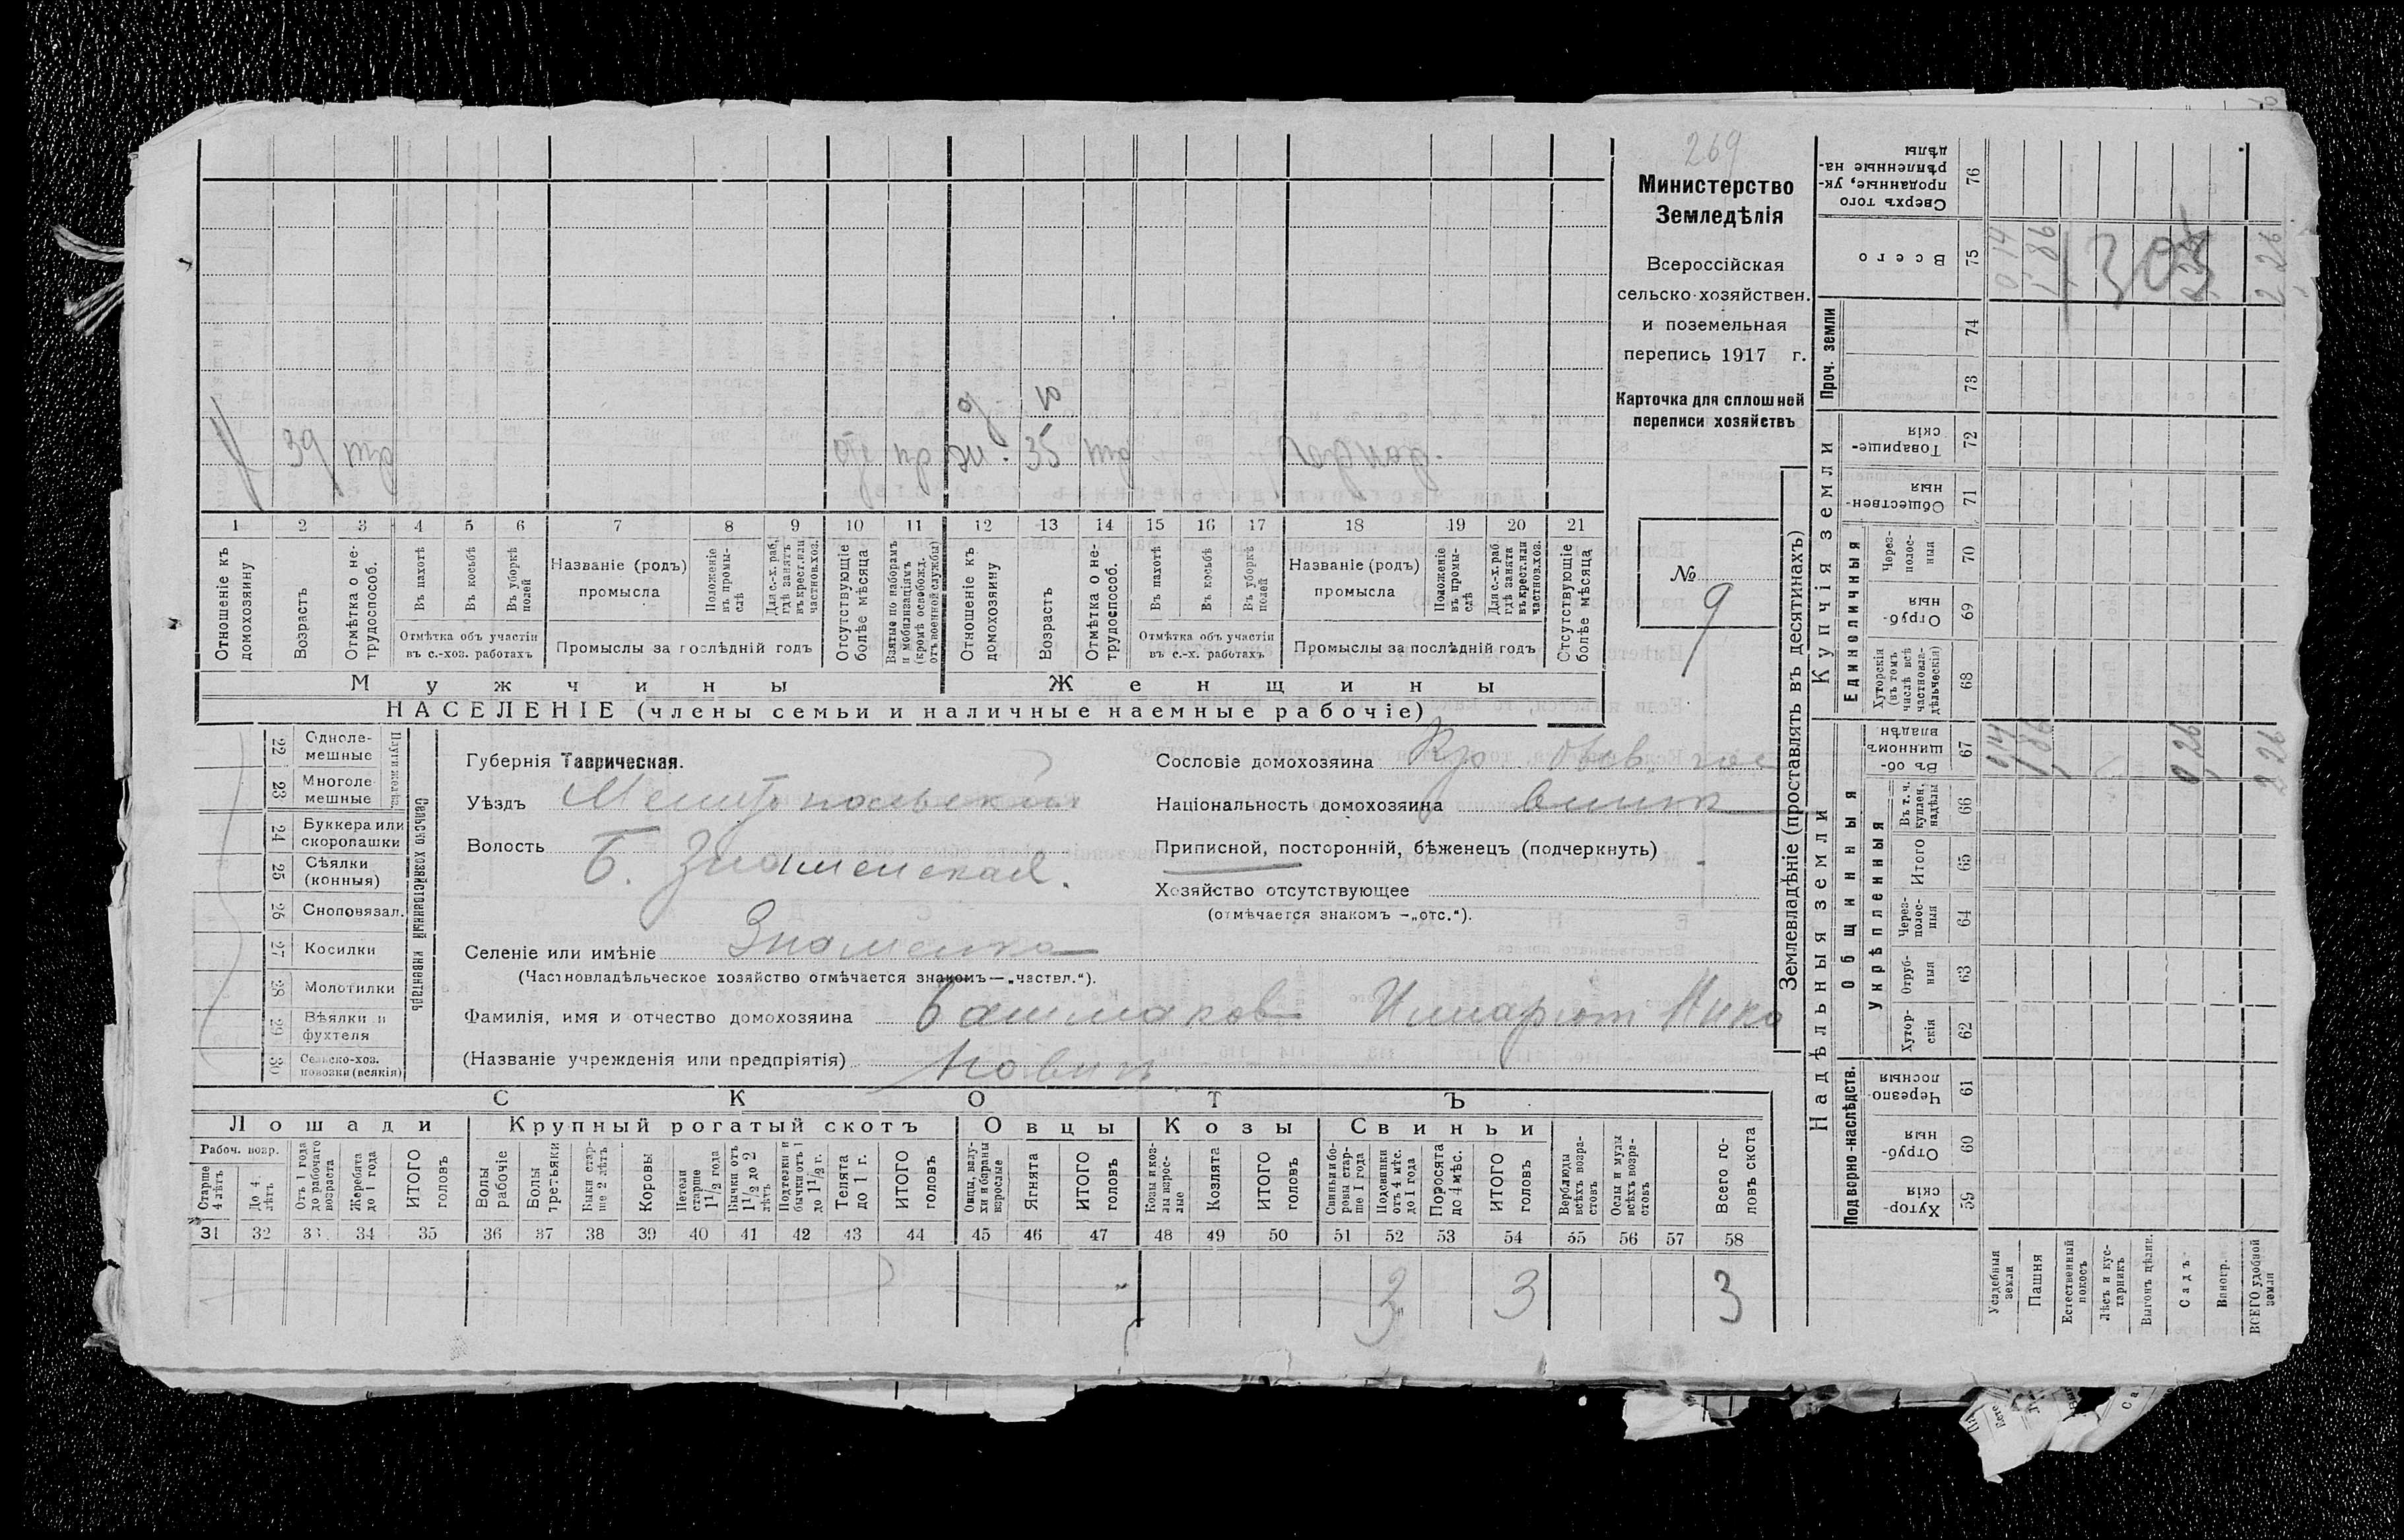 269
Министерство
Земледѣлія
Всероссійская
сельско-хозяйствен.
и поземельная
перепись 1917 г.
Карточка для сплошной
переписи хозяйствъ
№ 9
39
35 10
1 2 3 4 5 6 7 8 9 10 11 12 13 14 15 16 17 18 19 20 21
Отношеніе къ домохозяину
Возрастъ
Отмѣтка о не-трудоспособ.
Въ пахотѣ
Въ косьбѣ
Въ уборкѣ полей
Отмѣтка объ участіи въ с.-хоз. работахъ
Названіе (родъ) промысла
Положеніе въ промы-слѣ
Для с.-х. раб., гдѣ занятъ въ крест. или частнов. хоз.
Промыслы за послѣдній годъ
Отсутствующіе болѣе мѣсяца
Взятые по наборамъ и мобилизаціямъ (кромѣ освобожд. отъ военной службы)
Отношеніе къ домохозяину
Возрастъ
Отмѣтка о не-трудоспособ.
Въ пахотѣ
Въ косьбѣ
Въ уборкѣ полей
Отмѣтка объ участіи въ с.-х. работахъ
Названіе (родъ) промысла
Положеніе въ промы-слѣ
Для с.-х. раб. гдѣ занята въ крест. или частнов. хоз.
Промыслы за послѣдній годъ
Отсутствующіе болѣе мѣсяца
Мужчины Женщины
НАСЕЛЕНІЕ (члены семьи и наличные наемные рабочіе)
22 Одноле-мешные
23 Многоле-мешные
24 Буккера или скоропашки
25 Сѣялки (конныя)
26 Сноповязал.
27 Косилки
28 Молотилки
29 Вѣялки и фухтеля
30 Сельско-хоз. повозки (всякія)
Сельско хозяйственный инвентарь
Губернія Таврическая.
Уѣздъ Мелитопольскій
Волость Б. Знаменская.
Селеніе или имѣніе Знаменка
(Частновладѣльческое хозяйство отмѣчается знакомъ—„частвл.“).
Фамилія, имя и отчество домохозяина Башмаков Ипполит Нико
(Названіе учрежденія или предпріятія)
Сословіе домохозяина Кр.
Національность домохозяина
Приписной, посторонній, бѣженецъ (подчеркнуть)
Хозяйство отсутствующее
(отмѣчается знакомъ —„отс.“).
СКОТЪ
Лошади Крупный рогатый скотъ Овцы Козы Свиньи
Рабоч. возр.
Старше 4 лѣтъ
До 4 лѣтъ
Отъ 1 года до рабочаго возраста
Жеребята до 1 года
ИТОГО головъ
Волы рабочіе
Волы третьяки
Быки стар-ше 2 лѣтъ
Коровы
Нетели старше 1 1/2 года
Бычки отъ 1 1/2 до 2 лѣтъ
Подтелки и бычки отъ 1 до 1 1/2 г.
Телята до 1 г.
ИТОГО головъ
Овцы, валу-хи и бараны взрослые
Ягнята
ИТОГО головъ
Козы и коз-лы взрос-лые
Козлята
ИТОГО головъ
Свиньи и бо-ровы стар-ше 1 года
Подсвинки отъ 4 мѣс. до 1 года
Поросята до 4 мѣс.
ИТОГО головъ
Верблюды всѣхъ возра-стовъ
Ослы и мулы всѣхъ возра-стовъ
Всего го-ловъ скота
31 32 33 34 35 36 37 38 39 40 41 42 43 44 45 46 47 48 49 50 51 52 53 54 55 56 57 58
3 3 3
Землевладѣніе (проставлять въ десятинахъ)
Надѣльныя земли Купчія земли Проч. земли
Подворно-наслѣдств. Общинныя Единоличныя
Укрѣпленныя
Хутор-скія 59
Отруб-ныя 60
Черезпо-лосныя 61
Хутор-скія 62
Отруб-ныя 63
Через-полос-ныя 64
Итого 65
Въ т. ч. куплен. надѣлы 66
Въ об-щинномъ владѣн. 67
Хуторскія (въ томъ числѣ всѣ частновла-дѣльческія) 68
Отруб-ныя 69
Через-полос-ныя 70
Обществен-ныя 71
Товарище-скія 72
73
74
Всего 75
Сверхъ того проданные, ук-рѣпленные на-дѣлы 76
Усадебныя земли 0 14
Пашня 1,86 1,86
Естественный покосъ
Лѣсъ и кус-тарникъ
Выгонъ цѣлин.
Садъ 0,26
Виногр.
ВСЕГО удобной земли 2 26 2 26